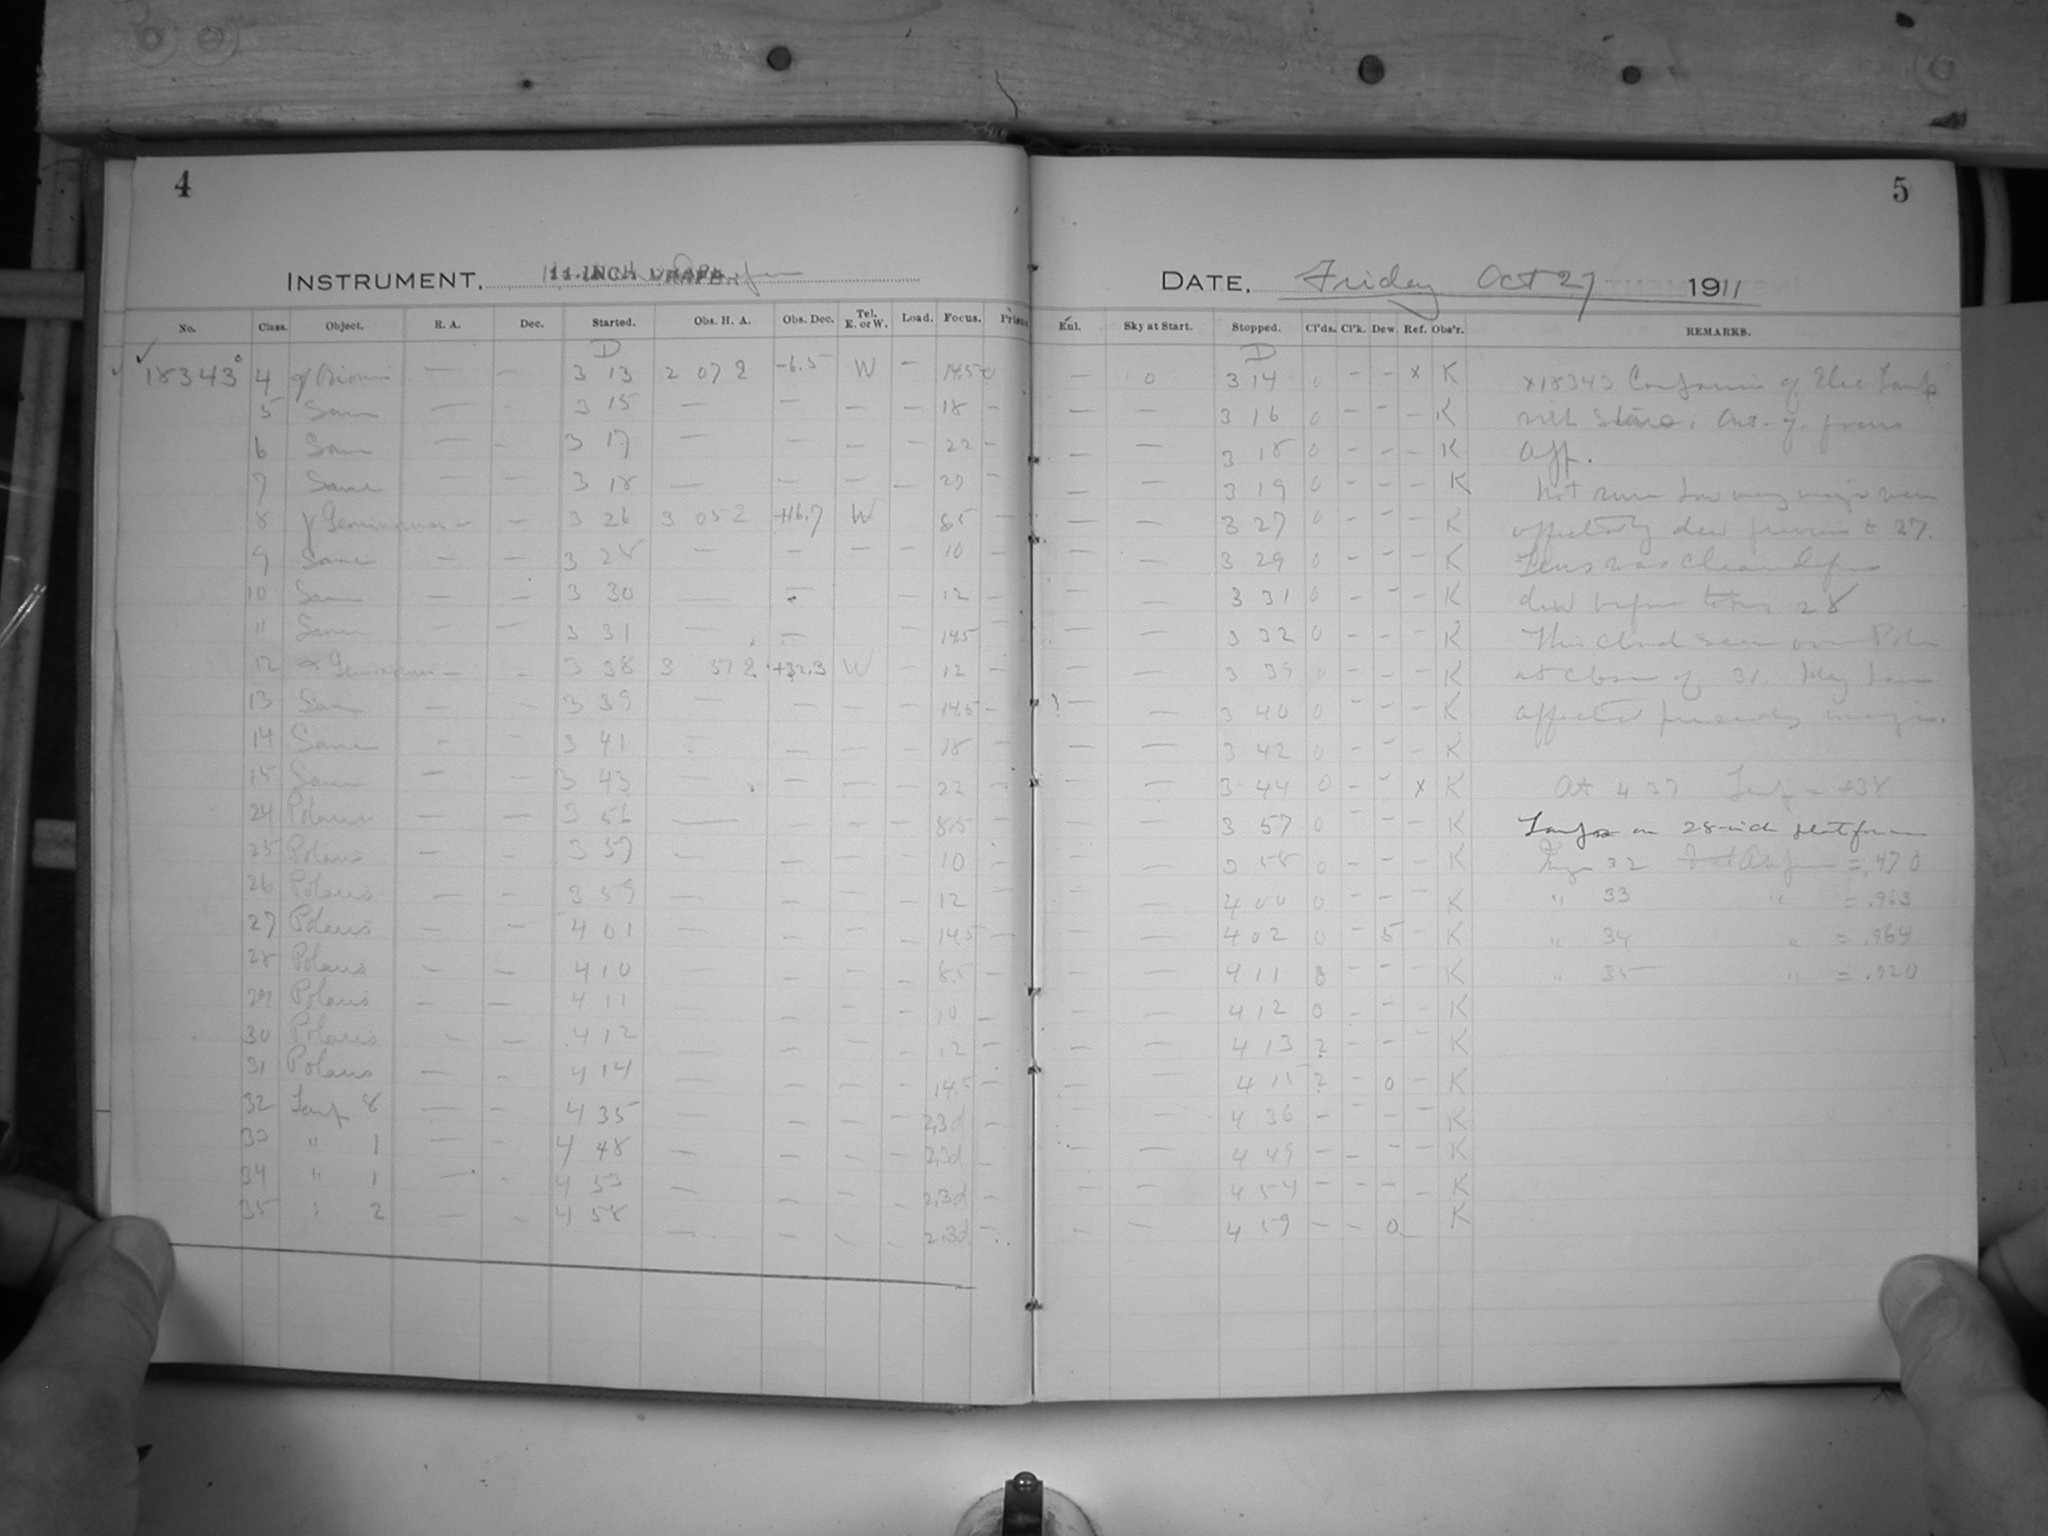 4
INSTRUMENT. 11-INCH DRAPER
No. Class. Object. R. A. Dec. Started. Obs. H. A. Obs. Dec. Tel. E. or W. Load. Focus. Prism
D
18343 4 Orionis — — 3 13 2 07 2 -6.5 W — 14.5
5 Same — — 3 15 — — — — 18 —
6 Same — — 3 17 — — — — 22 —
7 Same — — 3 18 — — — — 27 —
8 γ Geminorum — — 3 26 3 05 2 +16.7 W 8.5 —
9 Same — — 3 28 — — — — 10 —
10 Same — — 3 30 — — — 12 —
11 Same — — 3 31 — — — 14.5
12 α Geminorum — — 3 38 3 51 2 +32.3 W — 12 —
13 Same — — 3 39 — — — — 14.5 —
14 Same — — 3 41 — — — — 18 —
15 Same — — 3 43 — — — — 22 —
24 Polaris — — 3 56 — — — — 8.5 —
25 Polaris — — 3 57 — — — — 10 —
26 Polaris — — 3 59 — — — — 12 —
27 Polaris — — 4 01 — — — — 14.5 —
28 Polaris — — 4 10 — — — — 8.5 —
29 Polaris — — 4 11 — — — — 10 —
30 Polaris — — 4 12 — — — — 12 —
31 Polaris — — 4 14 — — — — 14.5 —
32 Lamp 8 — — 4 35 — — — 23d —
33 " 1 — — 4 48 — — — — 23d —
34 " 1 — 4 53 — — — — 23d —
35 " 2 — — 4 58 — — — 23d —
5
DATE. Friday Oct 27 1911
Enl. Sky at Start. Stopped. Cl'ds. Cl'k. Dew. Ref. Obs'r. REMARKS.
D
— 0 3 14 0 — — x K x18343 Comparison of Elec Lamp
— — 3 16 0 — — — K with Stars. Out-of-focus
— — 3 18 0 — — — K
— — 3 19 0 — — K Not sure how many images were
— — 3 27 0 — — K affected by dew previous to 27.
— — 3 29 0 — — — K Lens was cleaned of
— — 3 31 0 — — — K dew before taking 28
— — 3 32 0 — — — K Thin cloud seen over Pole
— — 3 39 0 — — — K at close of 31. May have
— — 3 40 0 — — — K affected preceding images.
— — 3 42 0 — — — K
— — 3 44 0 — — x K At 4 37 Temp = +38
— — 3 57 0 — — — K Lamps on 28-inch platform
— — 3 58 0 — — — K 32 = .470
— — 4 00 0 — — — K " 33 " = .963
— — 4 02 0 — 5 — K " 34 " = .964
— — 4 11 0 — — — K " 35 " = .920
— — 4 12 0 — — — K
— — 4 13 ? — — — K
— — 4 15 ? — 0 — K
— — 4 36 — — — — K
— — 4 49 — — — — K
— — 4 54 — — — — K
— — 4 59 — — 0 — K